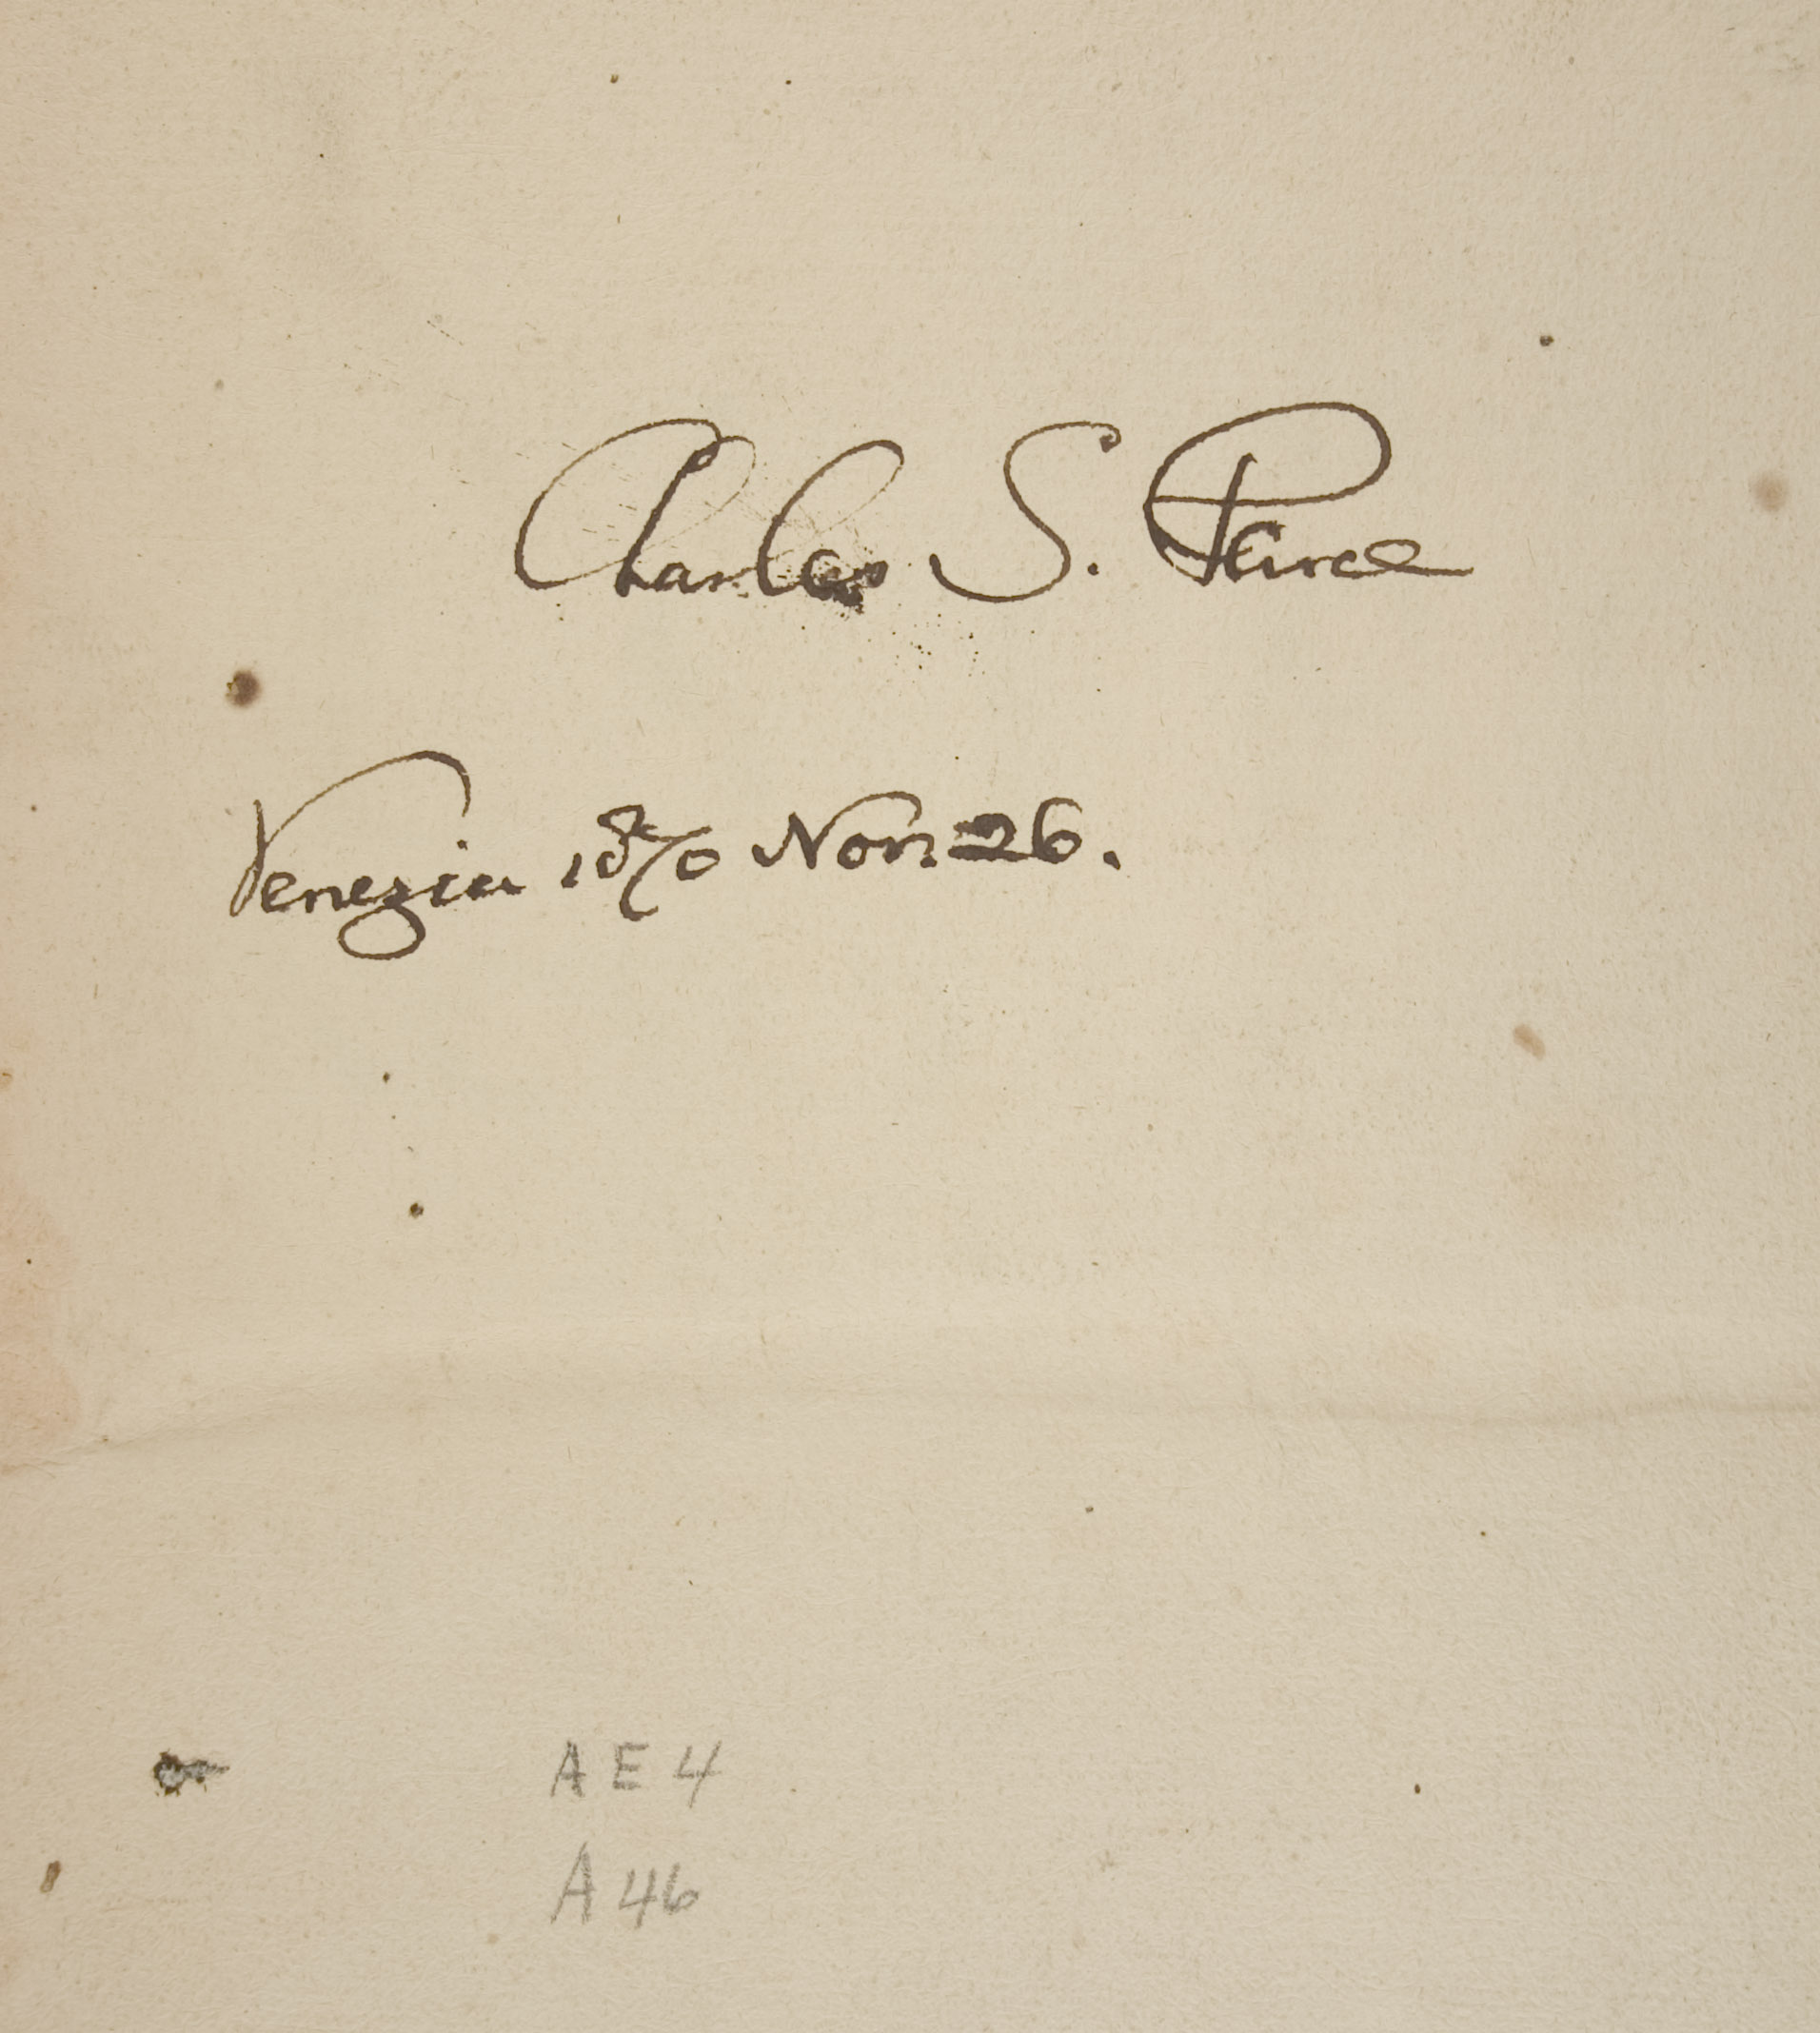 Charles S. Peirce
Venezia 1870 Nov. 26.
A E 4
A 46